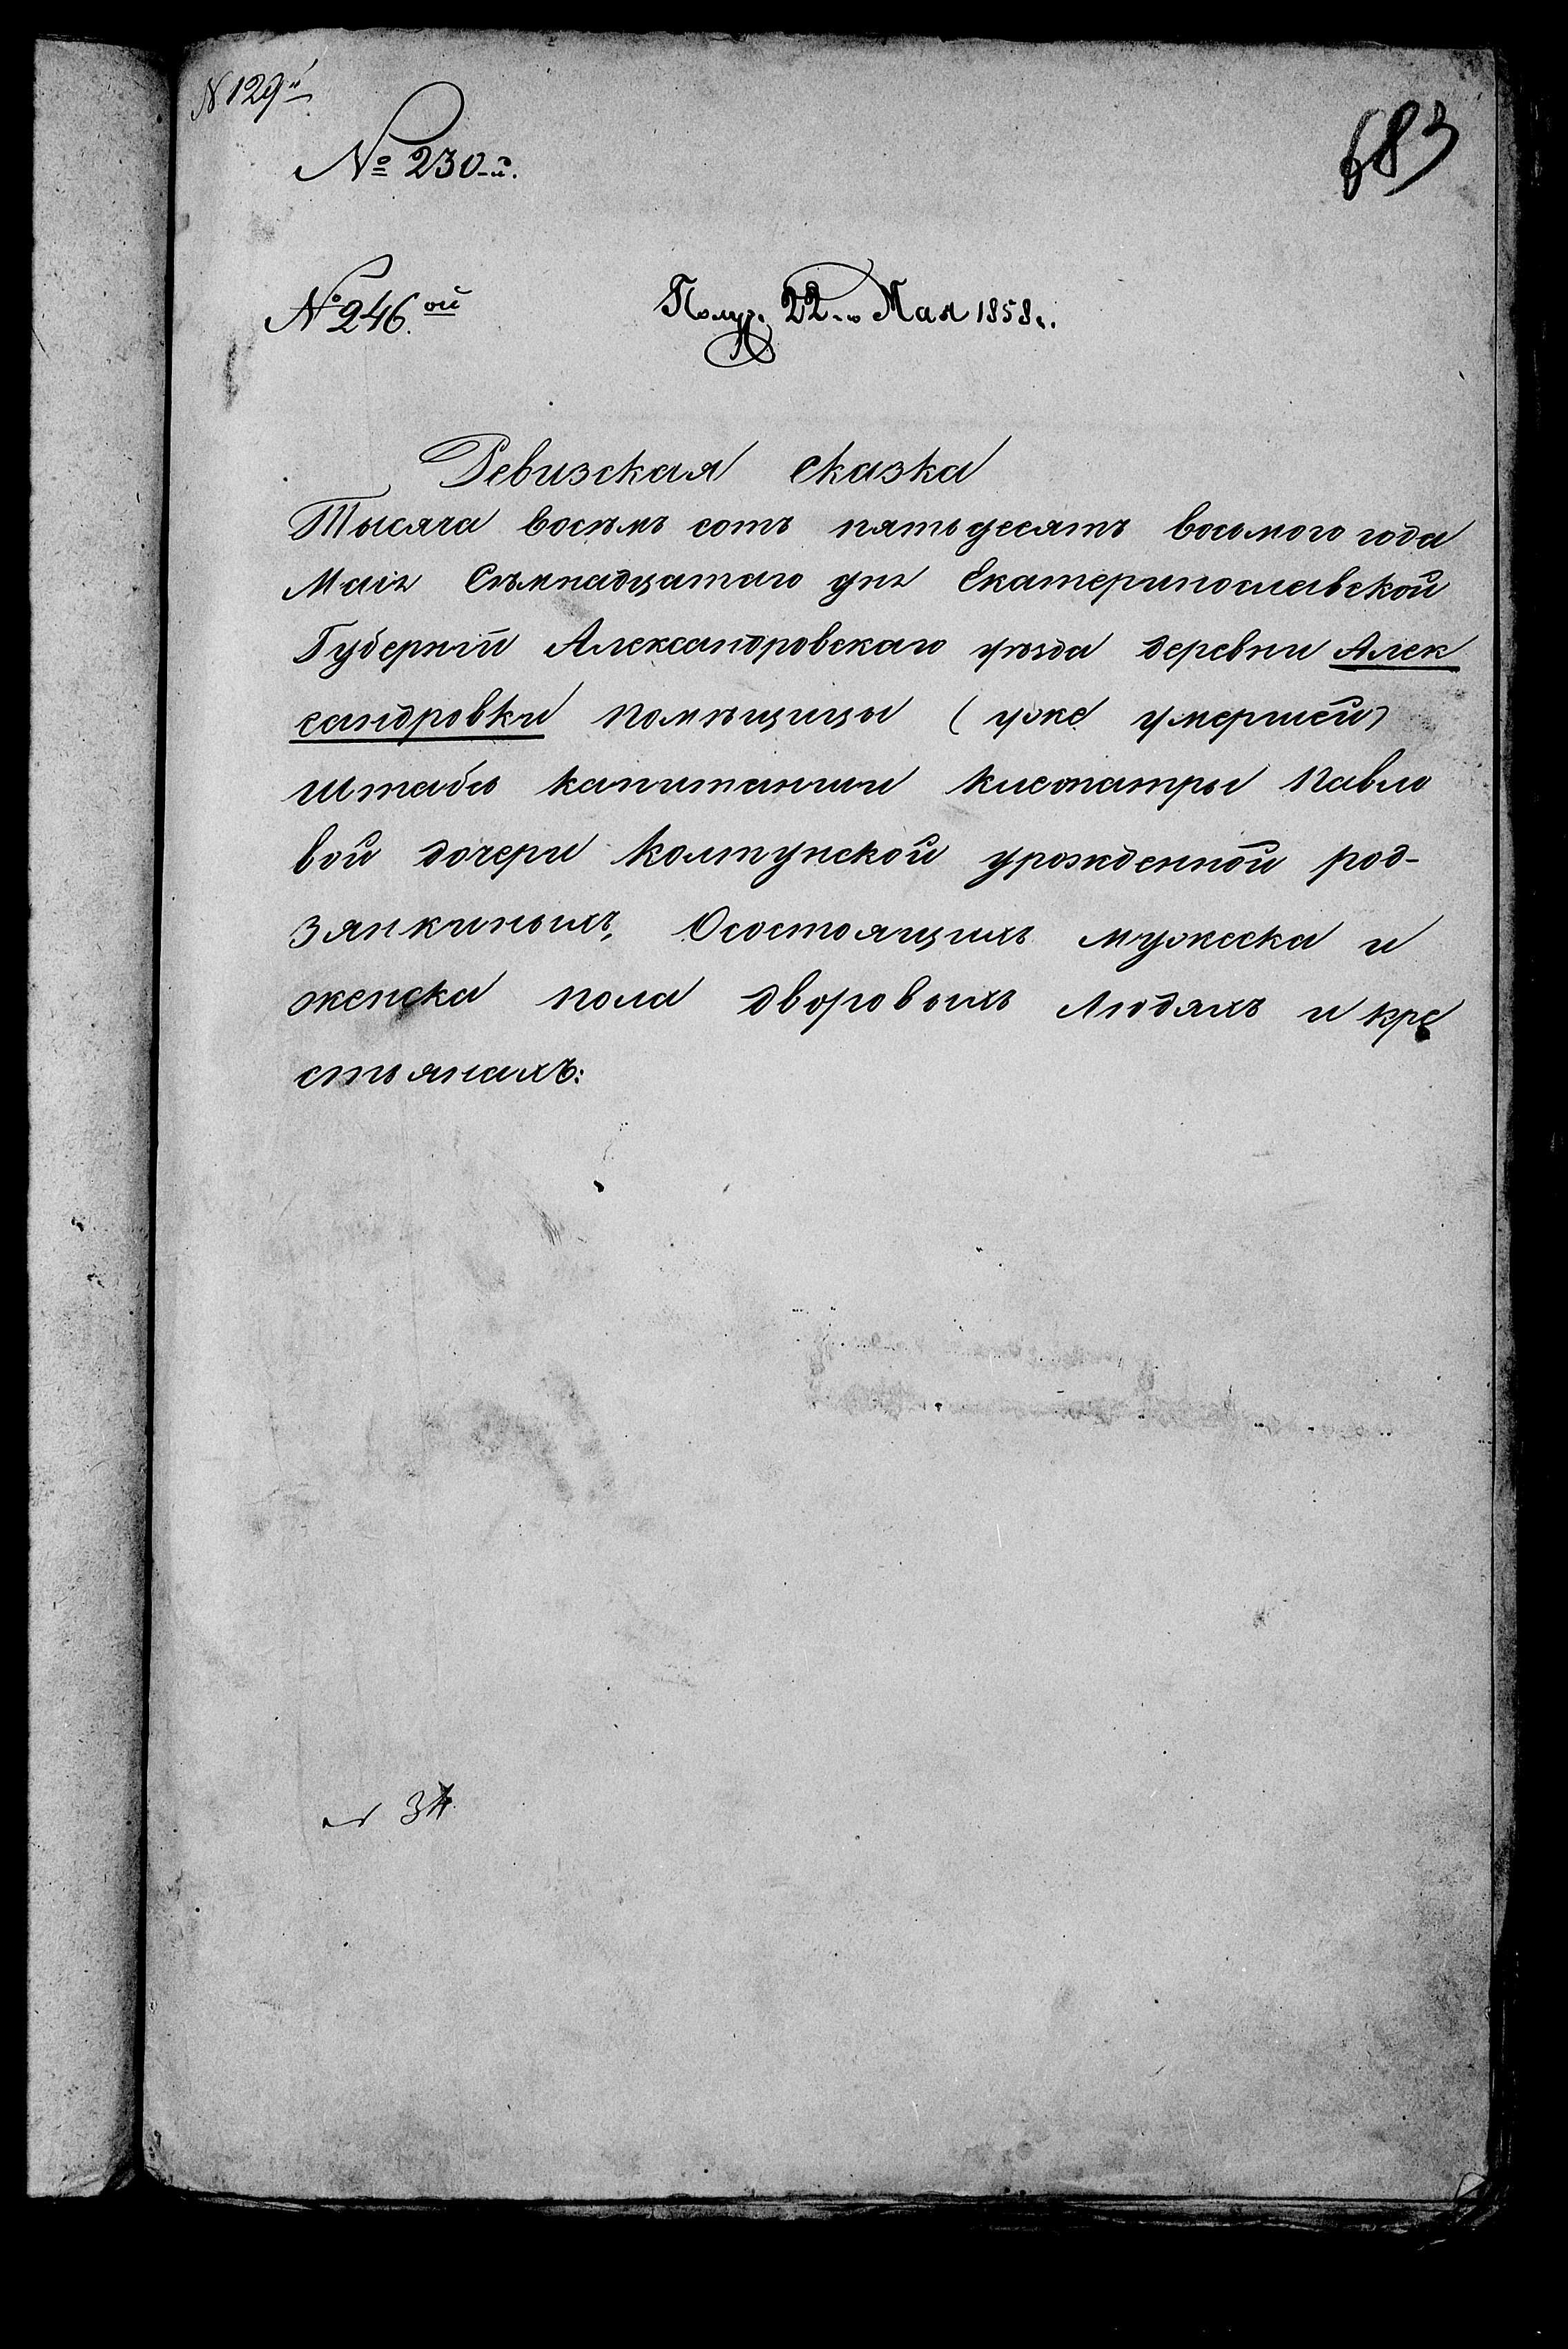 N 129й
683
№ 230-й.
№ 246.ой
Получ. 22-го Мая 1858 г.
Ревизская сказка
Тысяча восѣмъ сотъ пятьдесятъ восьмого года
Маія Сѣмнадцатаго дня Екатеринославской
Губерніи Александровскаго уѣзда деревни Алек
сандровки помѣщицы (уже умершей)
штабсъ капитанши Клеопатры Павло
вой дочери Колтунской урожденной род-
зянкиныхъ, Осостоящихъ мужеска и
женска пола дворовыхъ людяхъ и кре
стьянахъ:
34